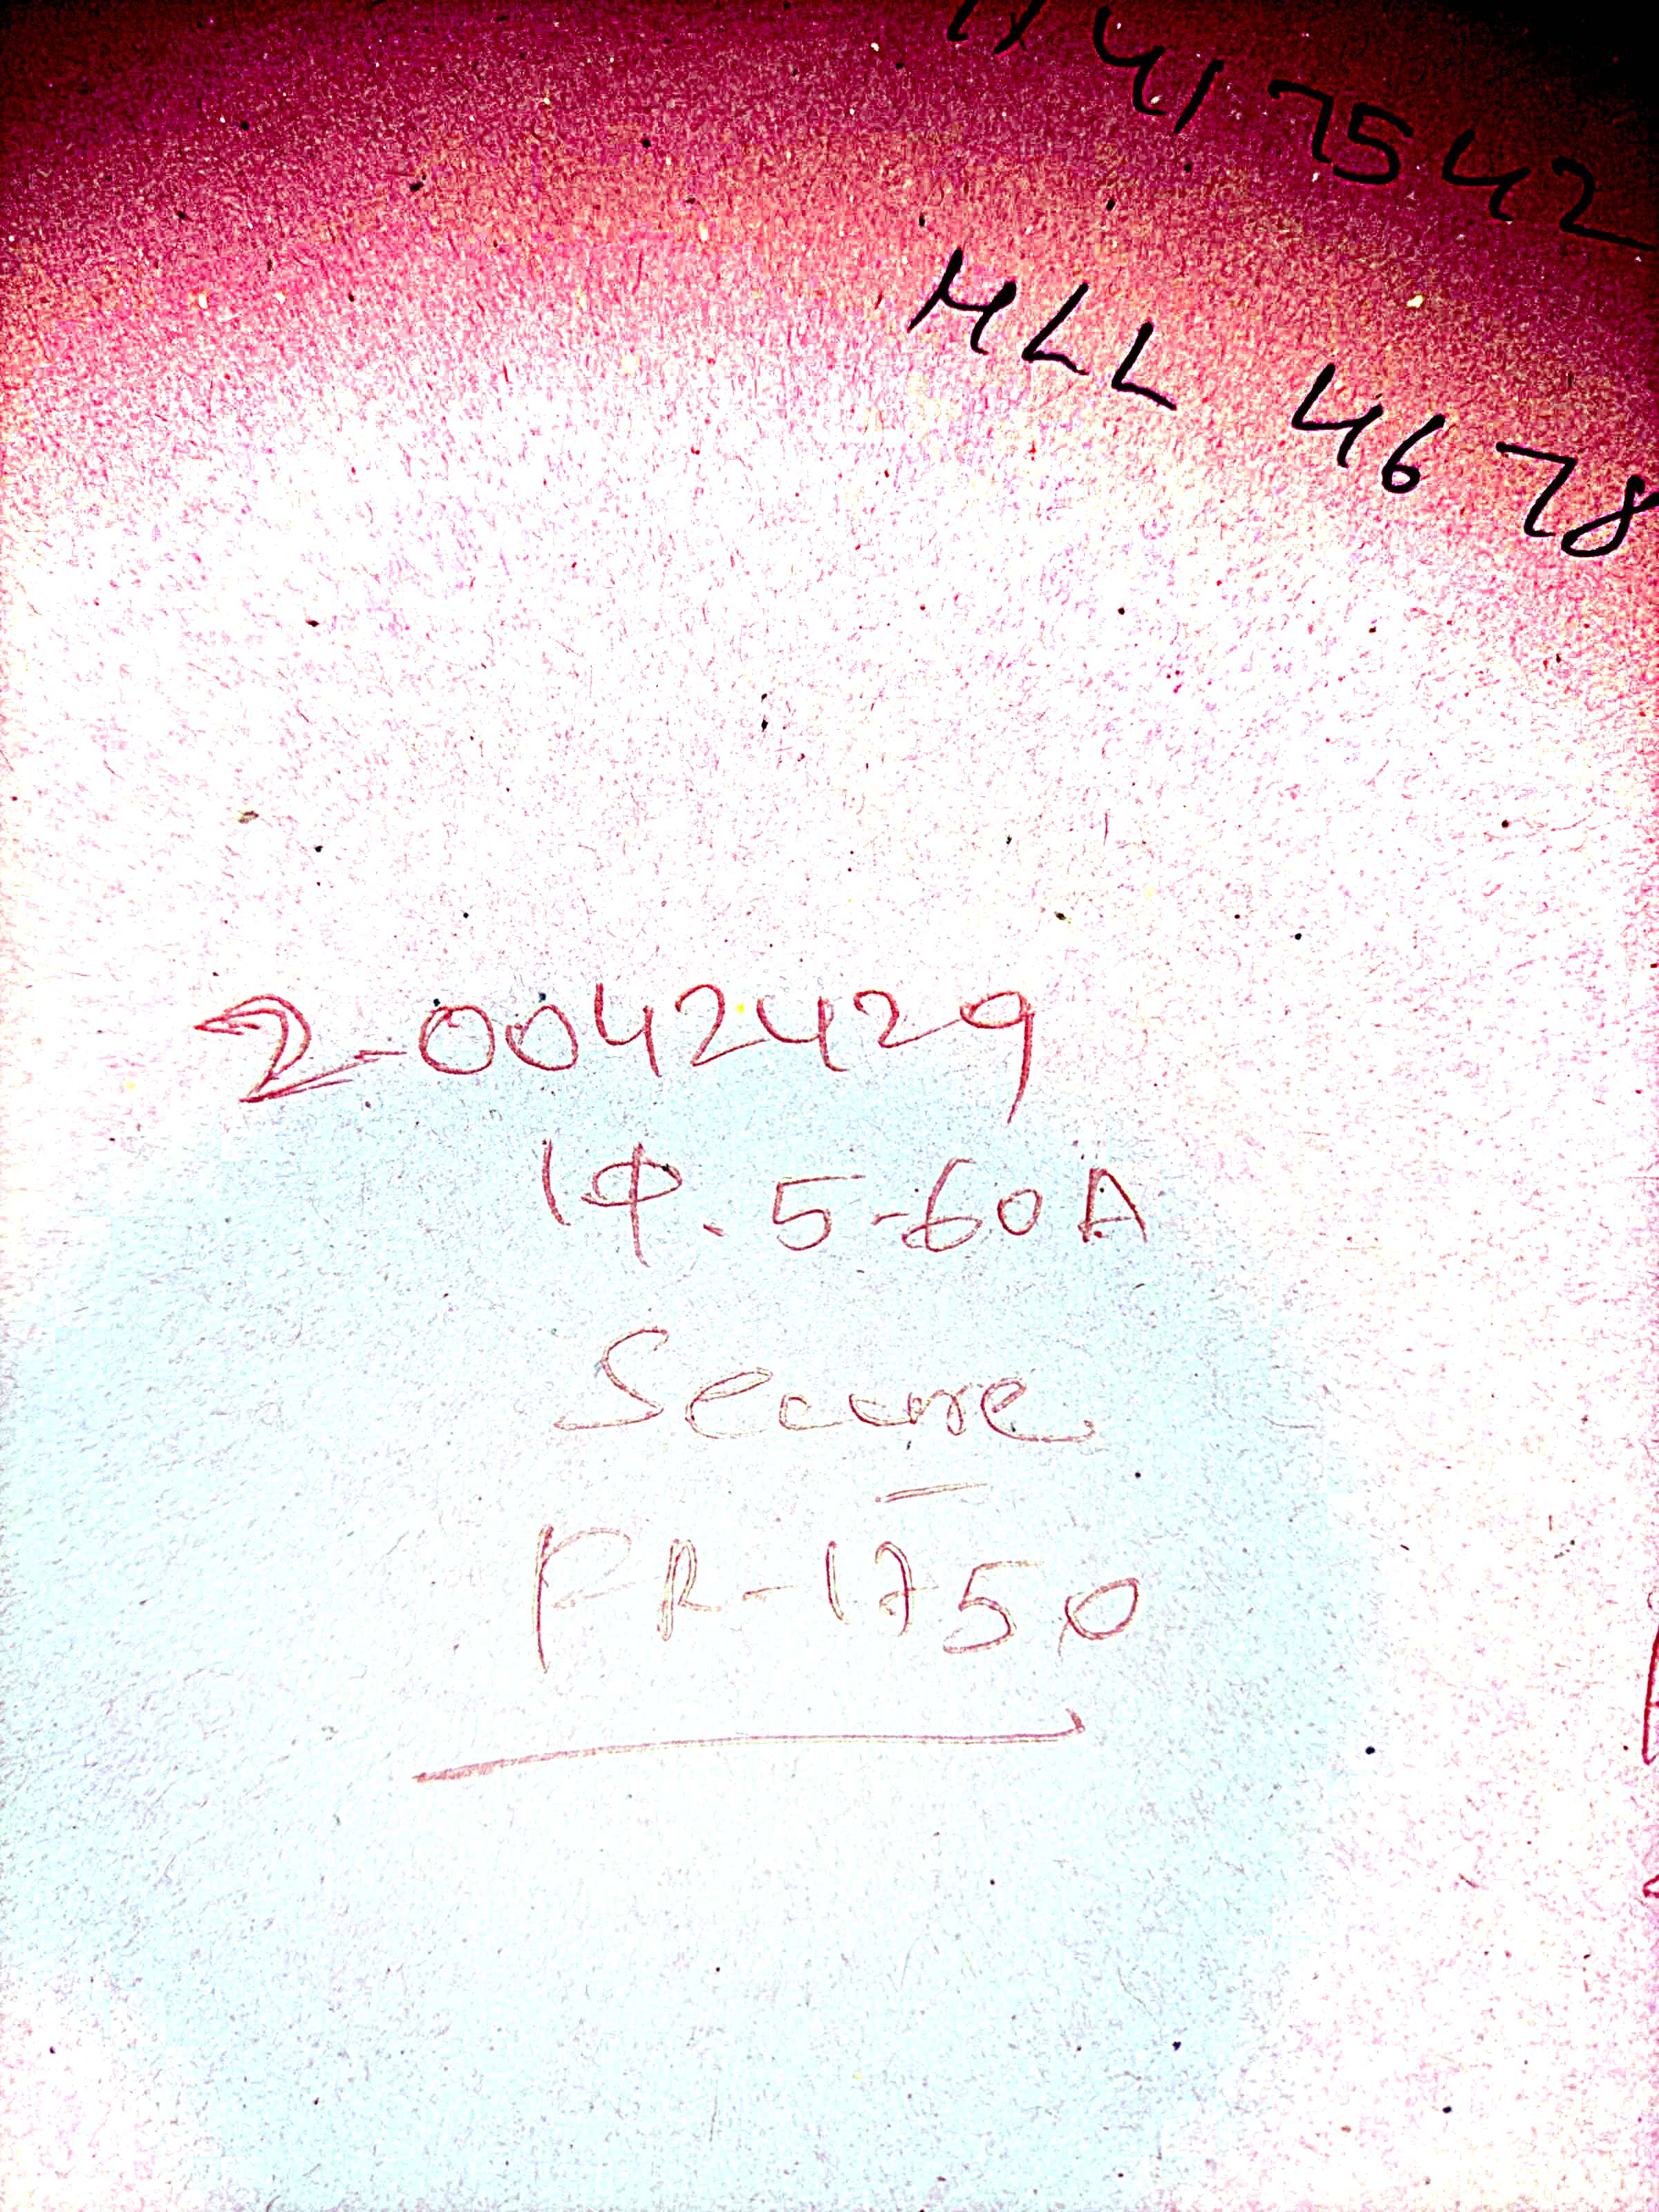 417542
MLL 4678
2-0042429
1Φ. 5-60A
Secure
PR-1750